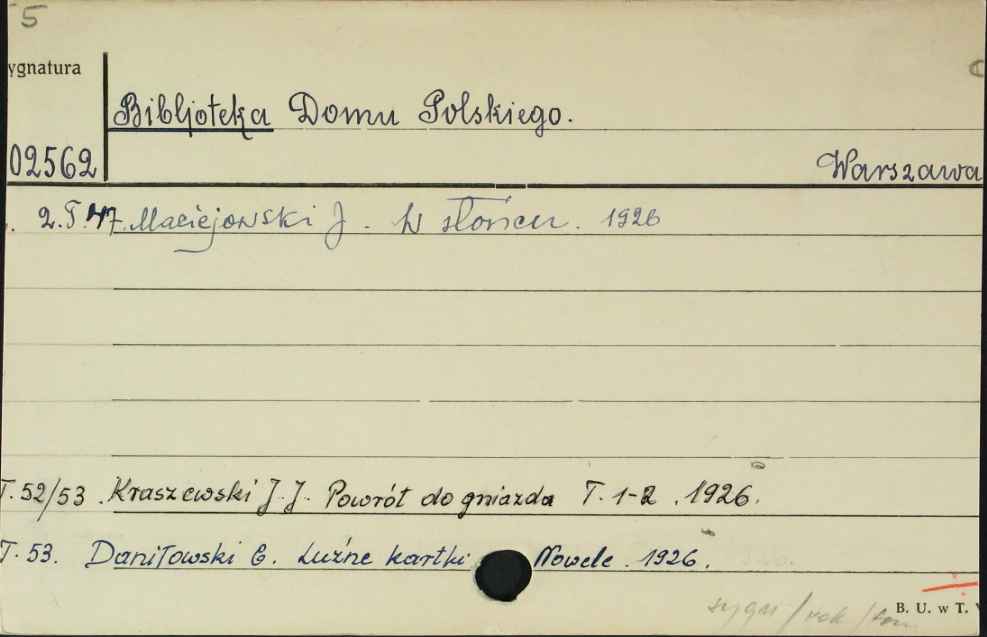 5
ygnatura
Bibljoteka Domu Polskiego.
02562
Warszawa
2. T. 47. Maciejowski J. W słońcu. 1926
T. 52/53. Kraszewski J. J. Powrót do gniazda T. 1-2. 1926.
T. 53. Daniłowski G. Luźne kartki Nowele. 1926.
sygn / rok / tom
B. U. w T.